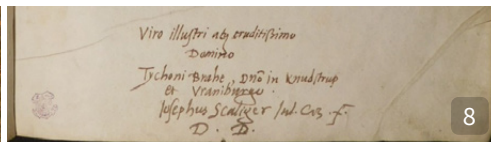 Viro illustri atq eruditissimo
Domino
Tychoni Brahe, Dño in Knudstrup
et Vraniburgo.
Josephus Scaliger Jul. Cæs. f.
D. D.
8